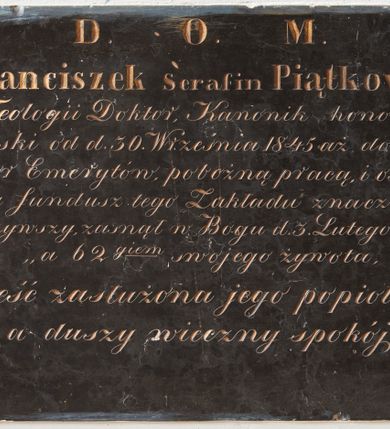 D. O. M.
anciszek Serafin Piątkow
Teologii Doktor, Kanonik hono
ski od d. 30. Września 1845 aż do
r Emerytów, pobożną pracą i o
fundusz tego Zakładu znacz
ywszy, zasnął w Bogu d. 3. Lutego
„a 62 giem swojego żywota,
eść zasłużona jego popioł
a duszy wieczny spokój